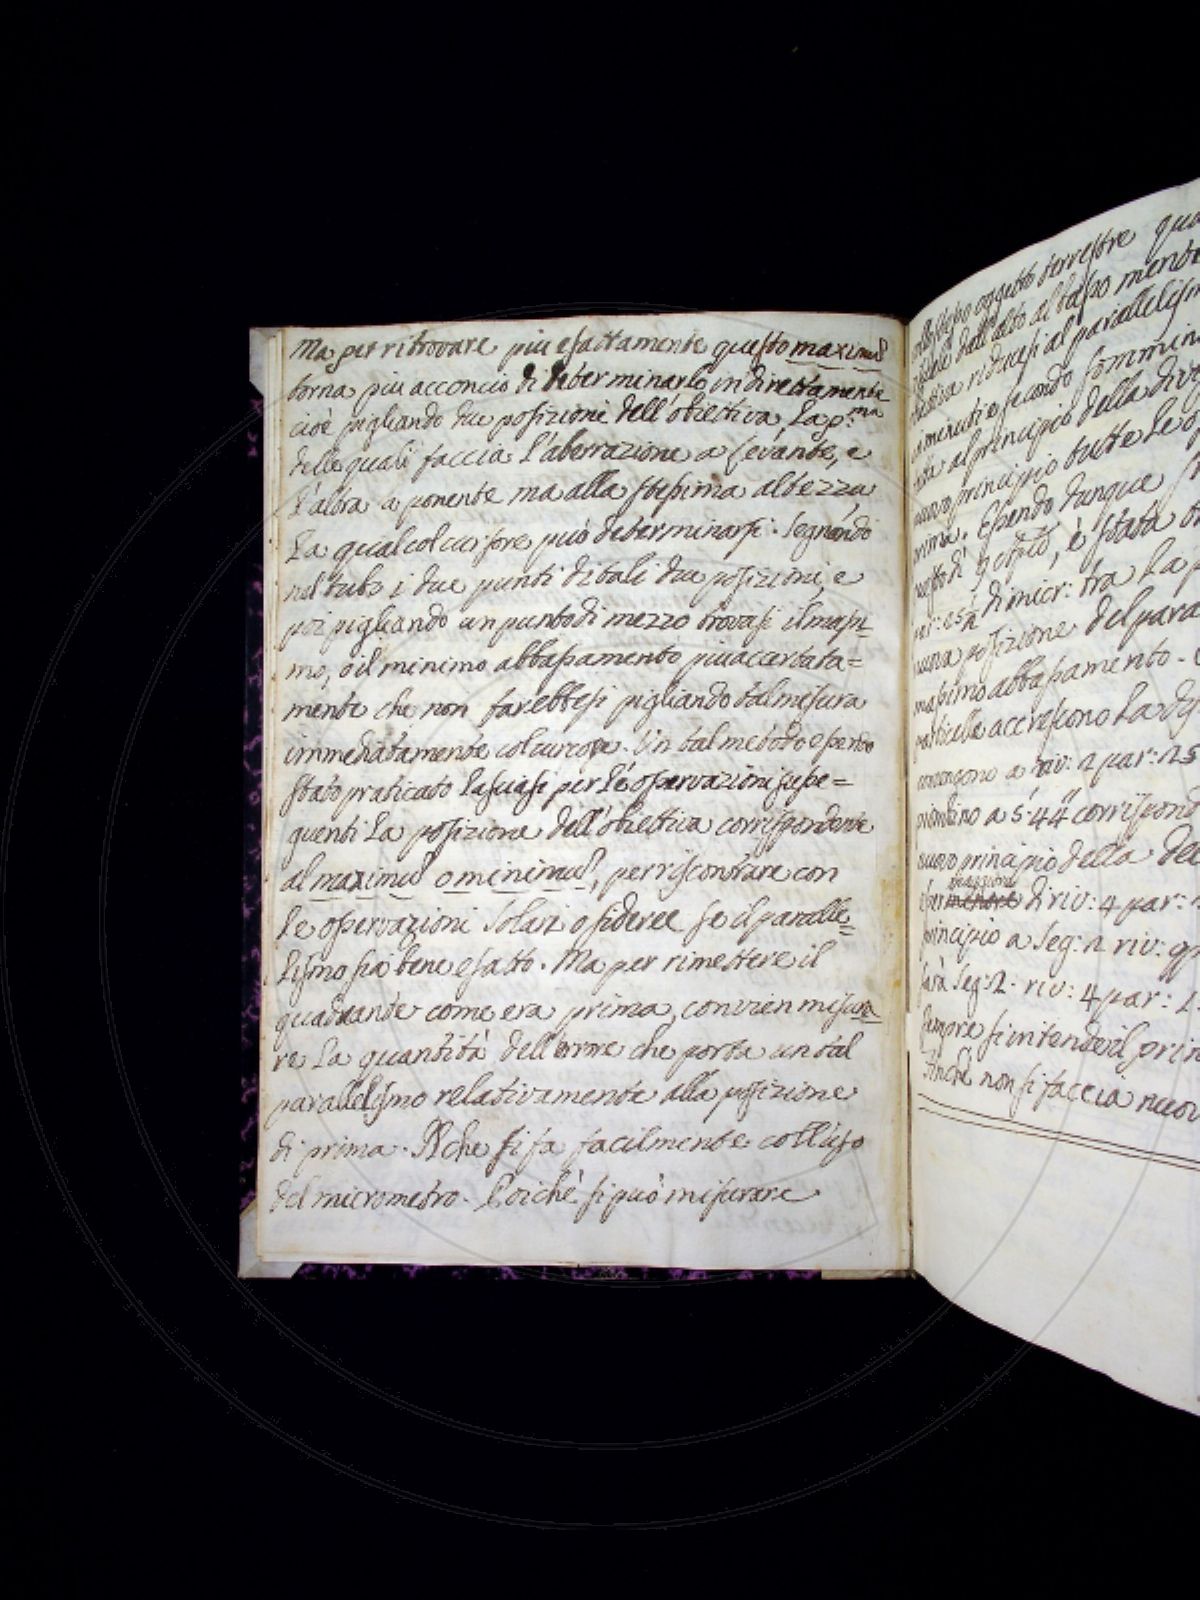 Ma per ritrovare piu esattamente questo maximũ
torna piu acconcio di determinarlo indirettamente
cioè pigliando due posizioni dell'obiettiva, La p:ma
delle quali faccia l'aberrazione a Levante, e
l'altra a ponente ma alla stessima altezza,
La qual col cursore può determinarsi. Segnando
nel tubo i due punti di tali due posizioni, e
poi pigliando un punto di mezzo trovasi il massi=
mo, o il minimo abbassamento piu accertata=
mente che non farebbesi pigliando tal mesura
immediatamente col cursore. Un tal metodo essendo
stato praticato lasciasi per le osservazioni susse=
guenti La posizione dell'obiettiva corrispondente
al maximũ o minimũ, per riscontrare con
le osservazioni Solari o sideree se il paralle=
lismo sia bene esatto. Ma per rimettere il
quadrante come era prima, convien misura=
re La quantità dell'errore che porta un tal
parallelismo relativamente alla posizione
di prima. Il che si fa facilmente coll'uso
del micrometro. Poichè si può misurare
oggetto terrestre
dall'alto al basso
ridursi al
minuti e secondi
al principio della
nuovo principio tutte le
prima. Essendo dunque
è stata
di micr: tra La
posizione del
massimo abbassamento.
particelle accrescono La
a riv: 2 par: 25
a 5' 44"
nuovo principio della
maggiore
di riv: 4 par:
principio a Seg: 2 riv:
sarà Seg: 2. riv: 4 par:
Sempre s'intende il
finchè non si faccia